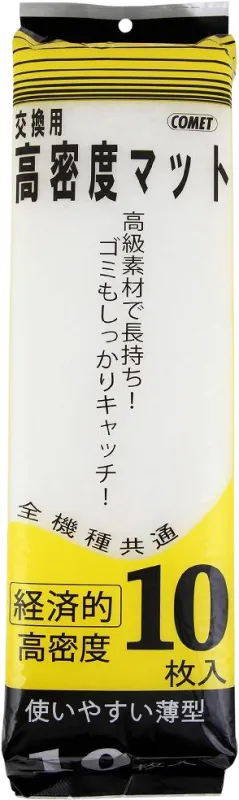 交換用
COMET
高密度マット
高級素材で長持ち！
ゴミもしっかりキャッチ！
全機種共通
経済的
高密度
10
枚入
使いやすい薄型
10枚入